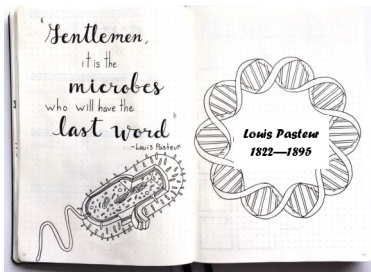 "Gentlemen,
it is the
microbes
who will have the
last word"
-Louis Pasteur
Louis Pasteur
1822—1895